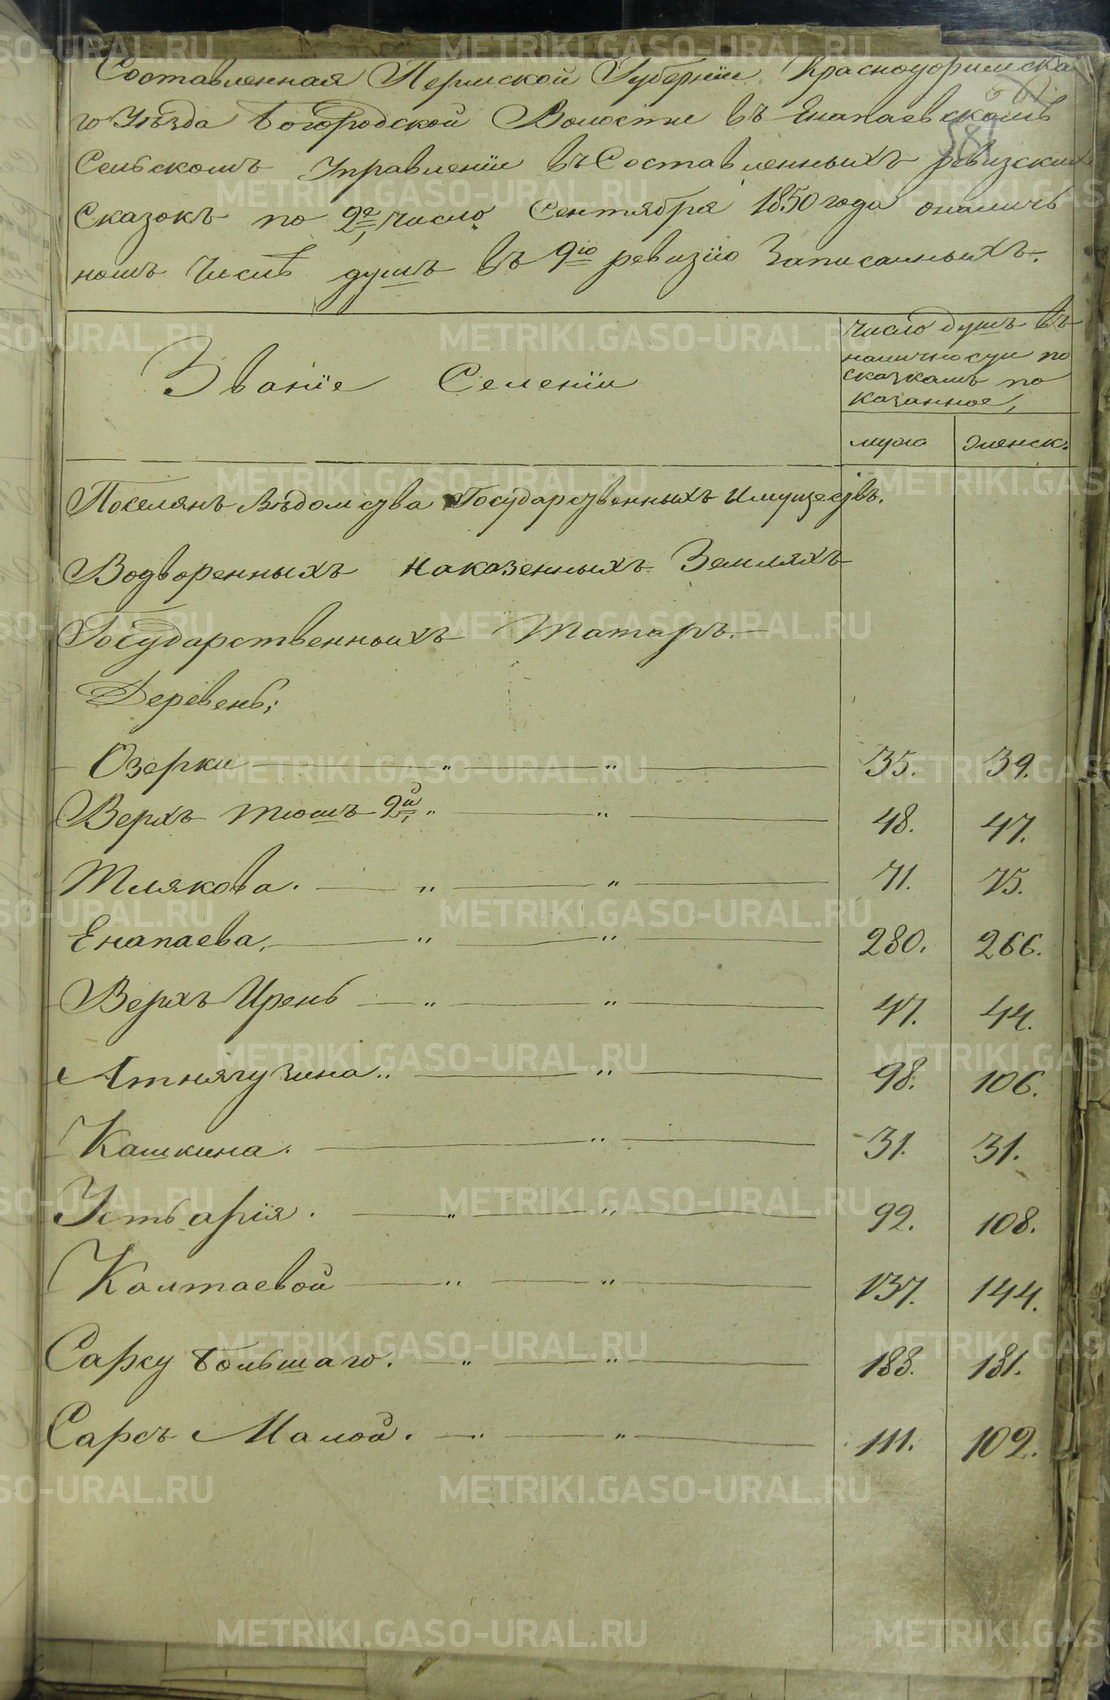 Составленная Пермской Губернии Красноуфимска
го Уѣзда Богородской Волости въ Енапаевскомъ
Сельскомъ Управленіи въ Составленныхъ ревизских
Сказокъ по 2е число Сентября 1850 года оналич
номъ Числѣ душъ въ 9ю ревизію Записанныхъ.
Званіе Селеніи
Число душъ въ
наличности по
сказкамъ по
казанное,
муж
женск.
Поселянъ Вѣдомства Государственныхъ Имуществъ.
Водворенныхъ наказенныхъ Земляхъ
Государственныхъ Татаръ.
Деревень;
Озерки 35. 39.
Верхъ Тюшъ 2й 48. 47.
Тлякова. 71. 75.
Енапаева. 280. 266.
Верхъ Ирень 47. 44.
Атнягузина. 98. 106.
Кашкина. 31. 31.
Усть арія. 92. 108.
Калтаевой 137. 144.
Сарсу Большаго. 188. 181.
Сарсъ Малой. 111. 102.
METRIKI.GASO-URAL.RU